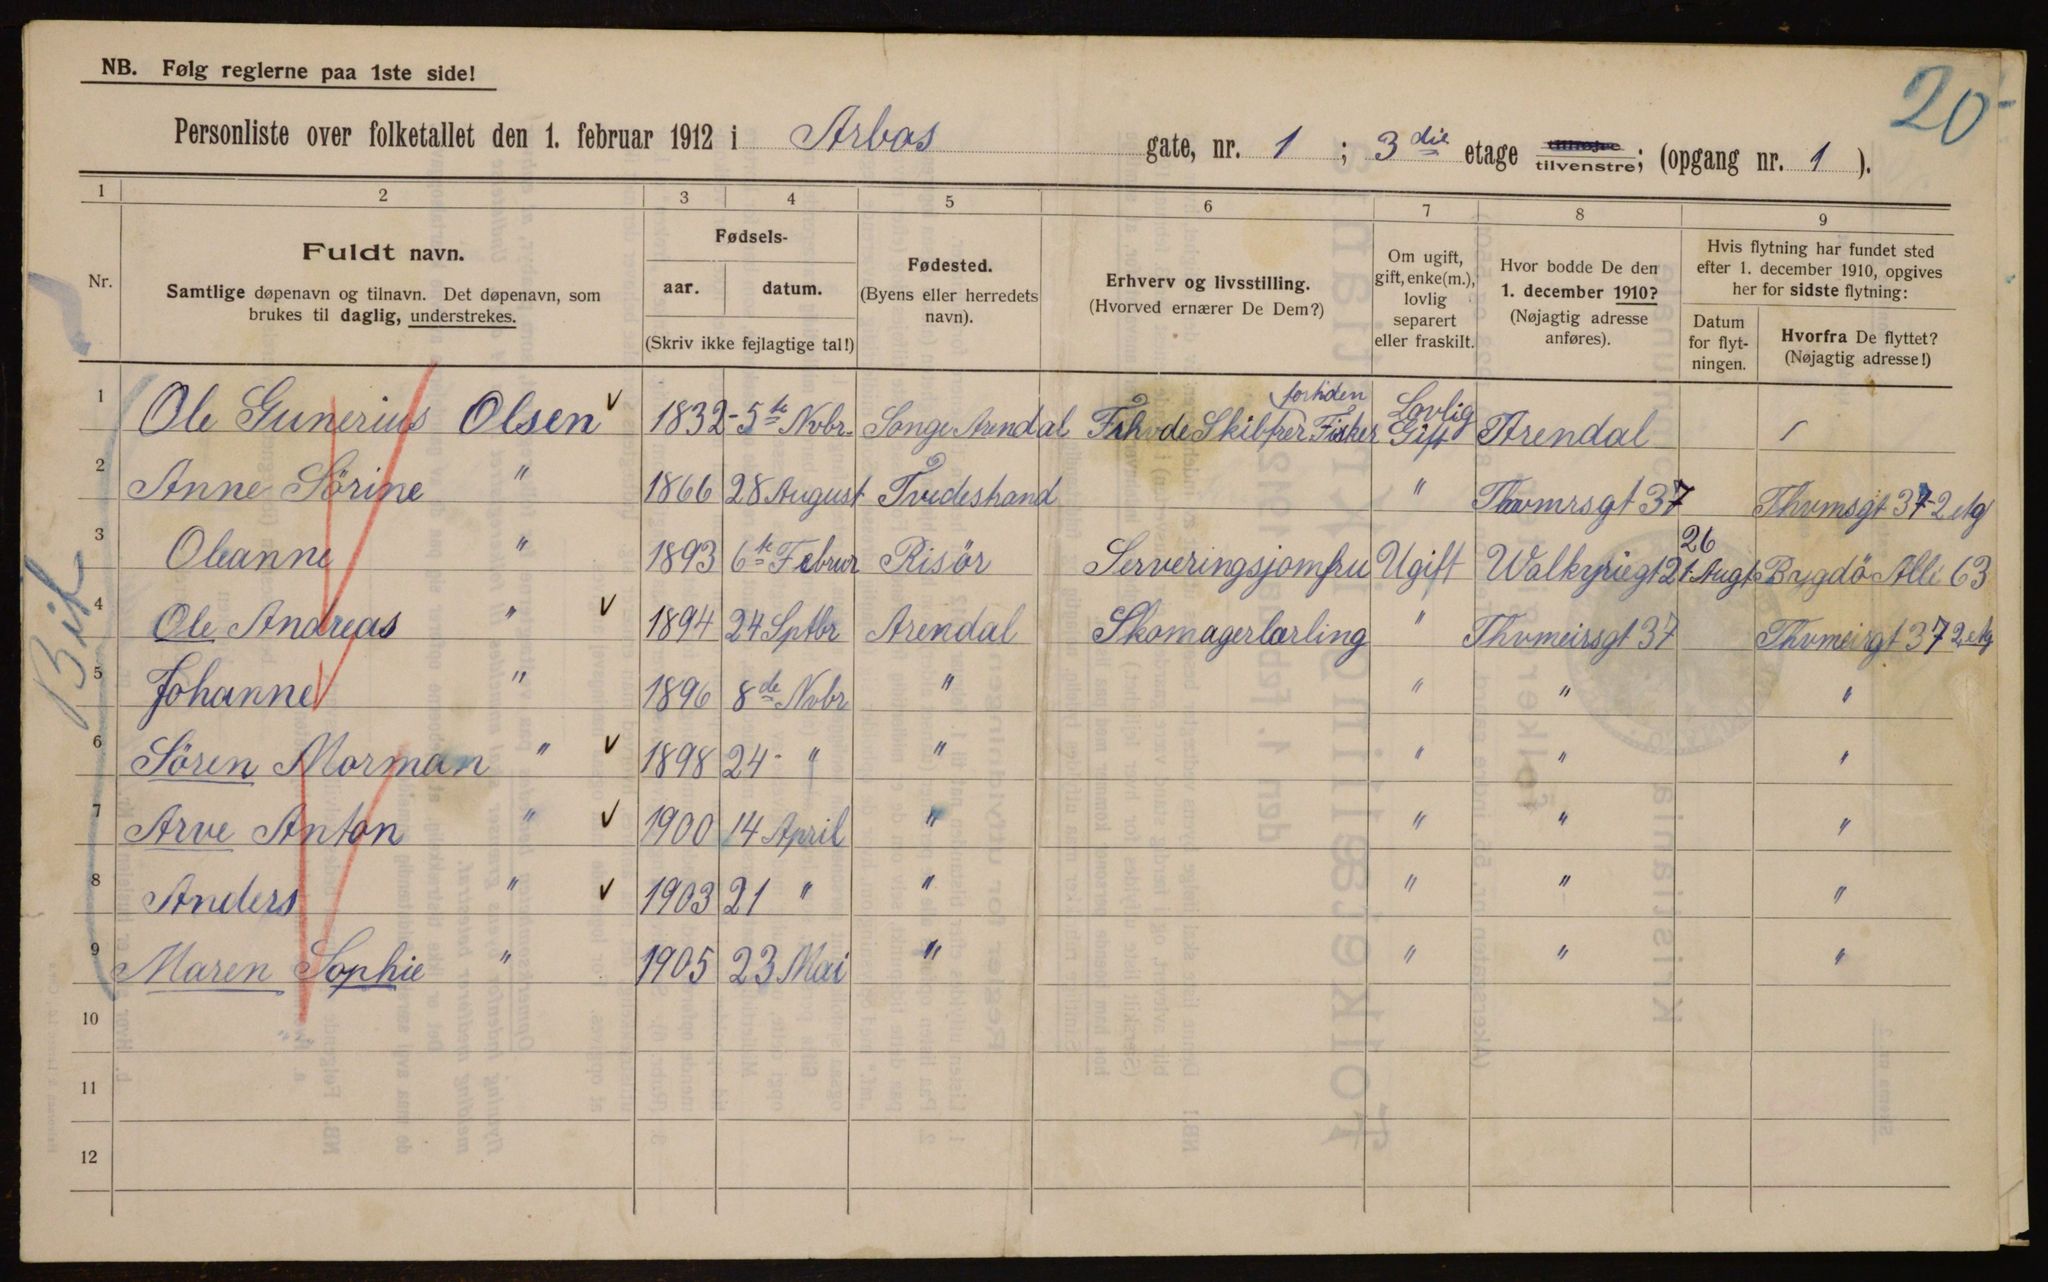 20
NB. Følg reglerne paa 1ste side!
Personliste over folketallet den 1. februar 1912 i Arbos gate, nr. 1 ; 3die etage tilhøjre tilvenstre; (opgang nr. 1 ).
1 2 3 4 5 6 7 8 9
Nr.
Fuldt navn.
Samtlige døpenavn og tilnavn. Det døpenavn, som
brukes til daglig, understrekes.
Fødsels-
aar. datum.
(Skriv ikke fejlagtige tal!)
Fødested.
(Byens eller herredets
navn).
Erhverv og livsstilling.
(Hvorved ernærer De Dem?)
Om ugift,
gift, enke(m.),
lovlig
separert
eller fraskilt.
Hvor bodde De den
1. december 1910?
(Nøjagtig adresse
anføres).
Hvis flytning har fundet sted
efter 1. december 1910, opgives
her for sidste flytning:
Datum
for flyt-
ningen.
Hvorfra De flyttet?
(Nøjagtig adresse!)
1 Ole Gunerius Olsen 1832 - 5te Nvbr. Songe Arendal Skibfrer fortiden Fisker Lovlig Gift Arendal
2 Anne Sörine " 1866 28 August Tvedestrand " Thvmrsgt 37 Thvmsgt 37-2 etg
3 Oleanne " 1893 6te Februr Risör Serveringsjomfru Ugift Walkyriegt 2 26 Augt Bygdö Alle 63
4 Ole Andreas " 1894 24 Sptbr Arendal Skomagerlærling " Thvmeirsgt 37 Thvmeirgt 37 2 etg
5 Johanne " 1896 8de Nvbr " " " "
6 Sören Morman " 1898 24 - " " " " "
7 Arve Anton " 1900 14 April " " " "
8 Anders " 1903 21 " " " " "
9 Maren Sophie " 1905 23 Mai " " " "
10
11
12